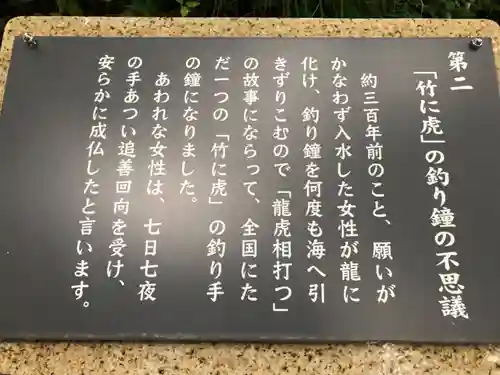 第二
「竹に虎」の釣り鐘の不思議
約三百年前のこと、願いが
かなわず入水した女性が龍に
化け、釣り鐘を何度も海へ引
きずりこむので「龍虎相打つ」
の故事にならって、全国にた
だ一つの「竹に虎」の釣り手
の鐘になりました。
あわれな女性は、七日七夜
の手あつい追善回向を受け、
安らかに成仏したと言います。